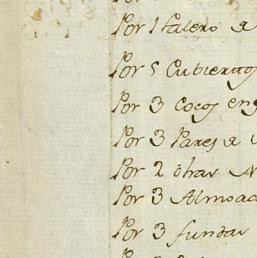 Por 1 Salero a
Por 5 Cubiertos
Por 3 Cocos en
Por 3 Pares a
Por 2 ôhas
Por 3 Almoa
Por 3 fundas